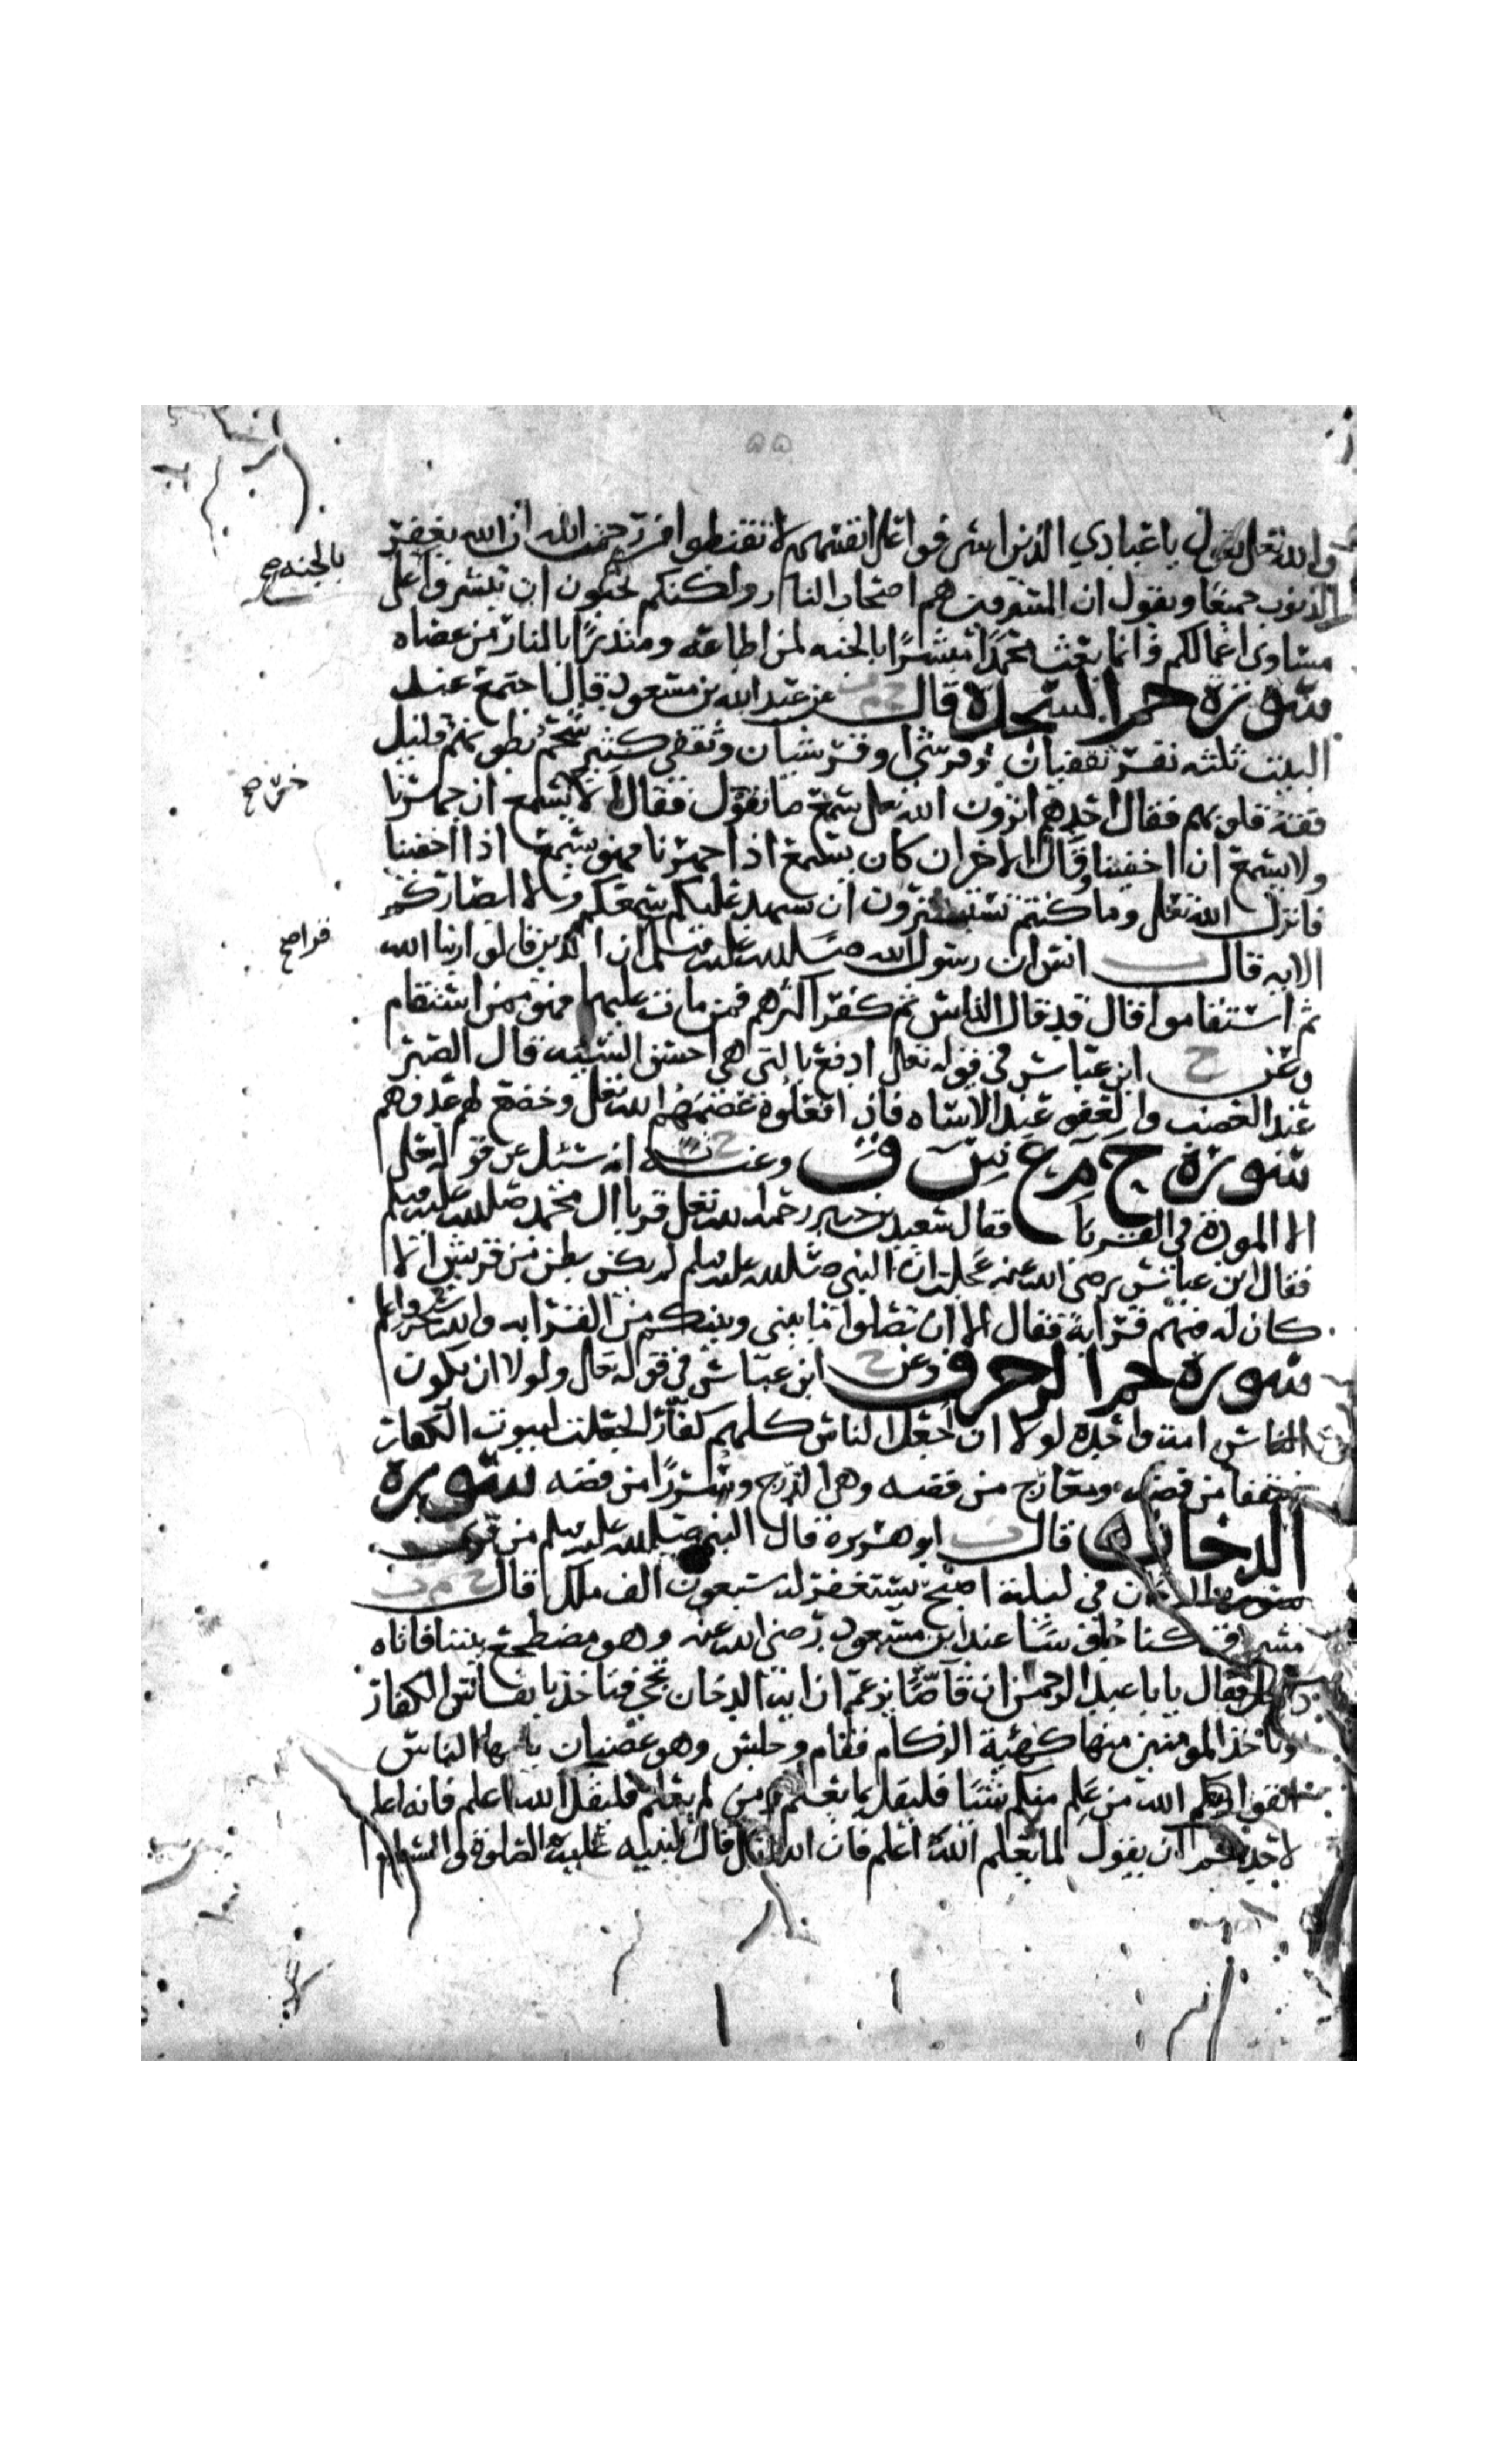 والله تعلى يقول ياعبادي الذين اسرفوا على انفسهم لا تقنطوا من رحمت الله ان الله يغفر
الذنوب جميعا ويقول ان المسرفين هم اصحاب النار ولكنكم تحبون ان تبشروا على
بالجنه صح
مساوى اعمالكم وانما بعث محمدا مبشرا بالجنه لمن اطاعه ومنذرا بالنار من عصاه
سورة حم السجدة قال خ م ت عن عبد الله بن مسعود قال اجتمع عند
البيت ثلثه نفر ثقفيان وقرشى او قرشيان وثقفى كثير شحم بطونهم قليل
فقه قلوبهم فقال احدهم اترون الله تعلى يسمع ما نقول فقال الاخر يسمع ان جهرنا
ولا يسمع ان اخفينا وقال الاخر ان كان يسمع اذا جهرنا فهو يسمع اذا اخفينا
فانزل الله تعلى وما كنتم تستترون ان يشهد عليكم سمعكم ولا ابصاركم
قرا صح
الايه قال ت انس ان رسول الله صلى الله عليه وسلم ان الذين قالوا ربنا الله
ثم استقاموا قال قد قال الناس ثم كفر اكثرهم فمن مات عليها فهو ممن استقام
وعن خ ابن عباس في قوله تعالى ادفع بالتى هي احسن السيئه قال الصبر
عند الغضب والعفو عند الاساه فاذا فعلوه عصمهم الله تعلى وخضع لهم عدوهم
سورة ح م ع س ق وعنه خ ت انه سئل عن قوله تعلى
الا المودة في القربا فقال سعيد بن جبير رحمه الله تعلى قربا ال محمد صلى الله عليه وسلم
فقال ابن عباس رضى الله عنه عجلت ان النبي صلى الله عليه وسلم لم يكن بطن من قريش الا
كان له فيهم قرابة فقال الا ان تصلوا ما بيني وبينكم من القرابه والله اعلم
سورة حم الزخرف وعن خ ابن عباس في قوله تعالى ولولا ان يكون
الناس امه واحده لولا ان اجعل الناس كلهم كفارا لجعلت لبيوت الكفار
سقفا من فضه ومعارج من فضه وهى الدرج وسررا من فضه سورة
الدخان قال ت ابو هريرة قال النبي صلى الله عليه وسلم من قرا
سورة الدخان في ليلة اصبح يستغفر له سبعون الف ملك قال خ م ت
مسروق كنا جلوسا عند ابن مسعود رضى الله عنه وهو مضطجع بيننا فاتاه
رجل فقال يابا عبد الرحمن ان قاصا يزعم ان اية الدخان تجي فتاخذ بانفاس الكفار
وتاخذ المومنين منها كهيئة الزكام فقام وجلس وهو غضبان يا ايها الناس
اتقوا الله من علم منكم شيئا فليقل بما يعلم ومن لم يعلم فليقل الله اعلم فانه اعلم
لاحدكم ان يقول لما لا يعلم الله اعلم فان الله تعالى قال لنبيه عليه الصلوة والسلام